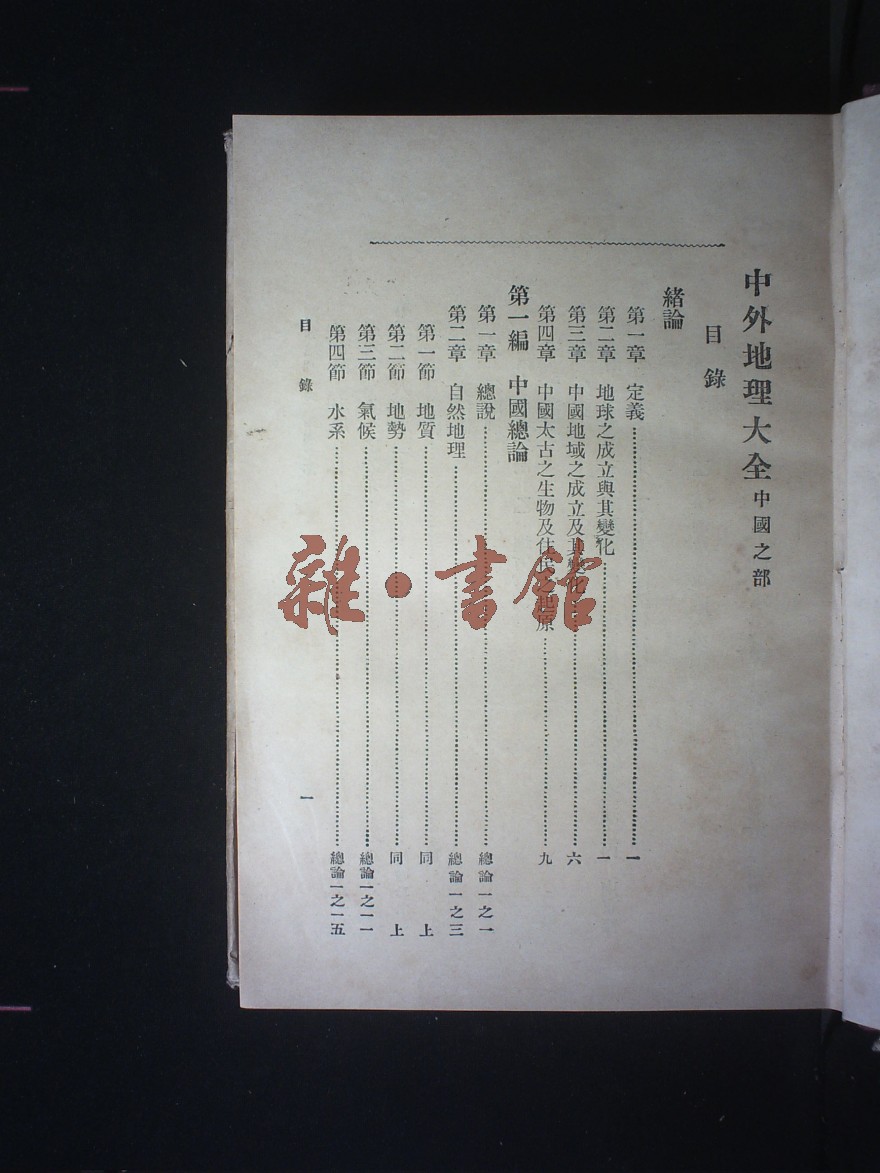 中外地理大全中國之部
目錄
緒論
第一章 定義………一
第二章 地球之成立與其變化………一
第三章 中國地域之成立及其變化………六
第四章 中國太古之生物及住民之起原………九
第一編 中國總論
第一章 總說………總論一之一
第二章 自然地理………總論一之三
第一節 地質………同上
第二節 地勢………同上
第三節 氣候………總論一之一一
第四節 水系………總論一之一五
目錄 一
雜·書館